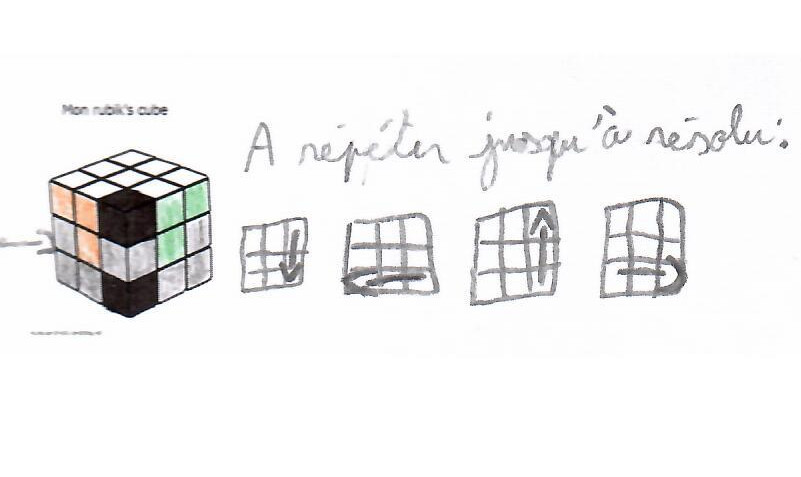 Mon rubik's cube
A répéter jusqu'à résolu: